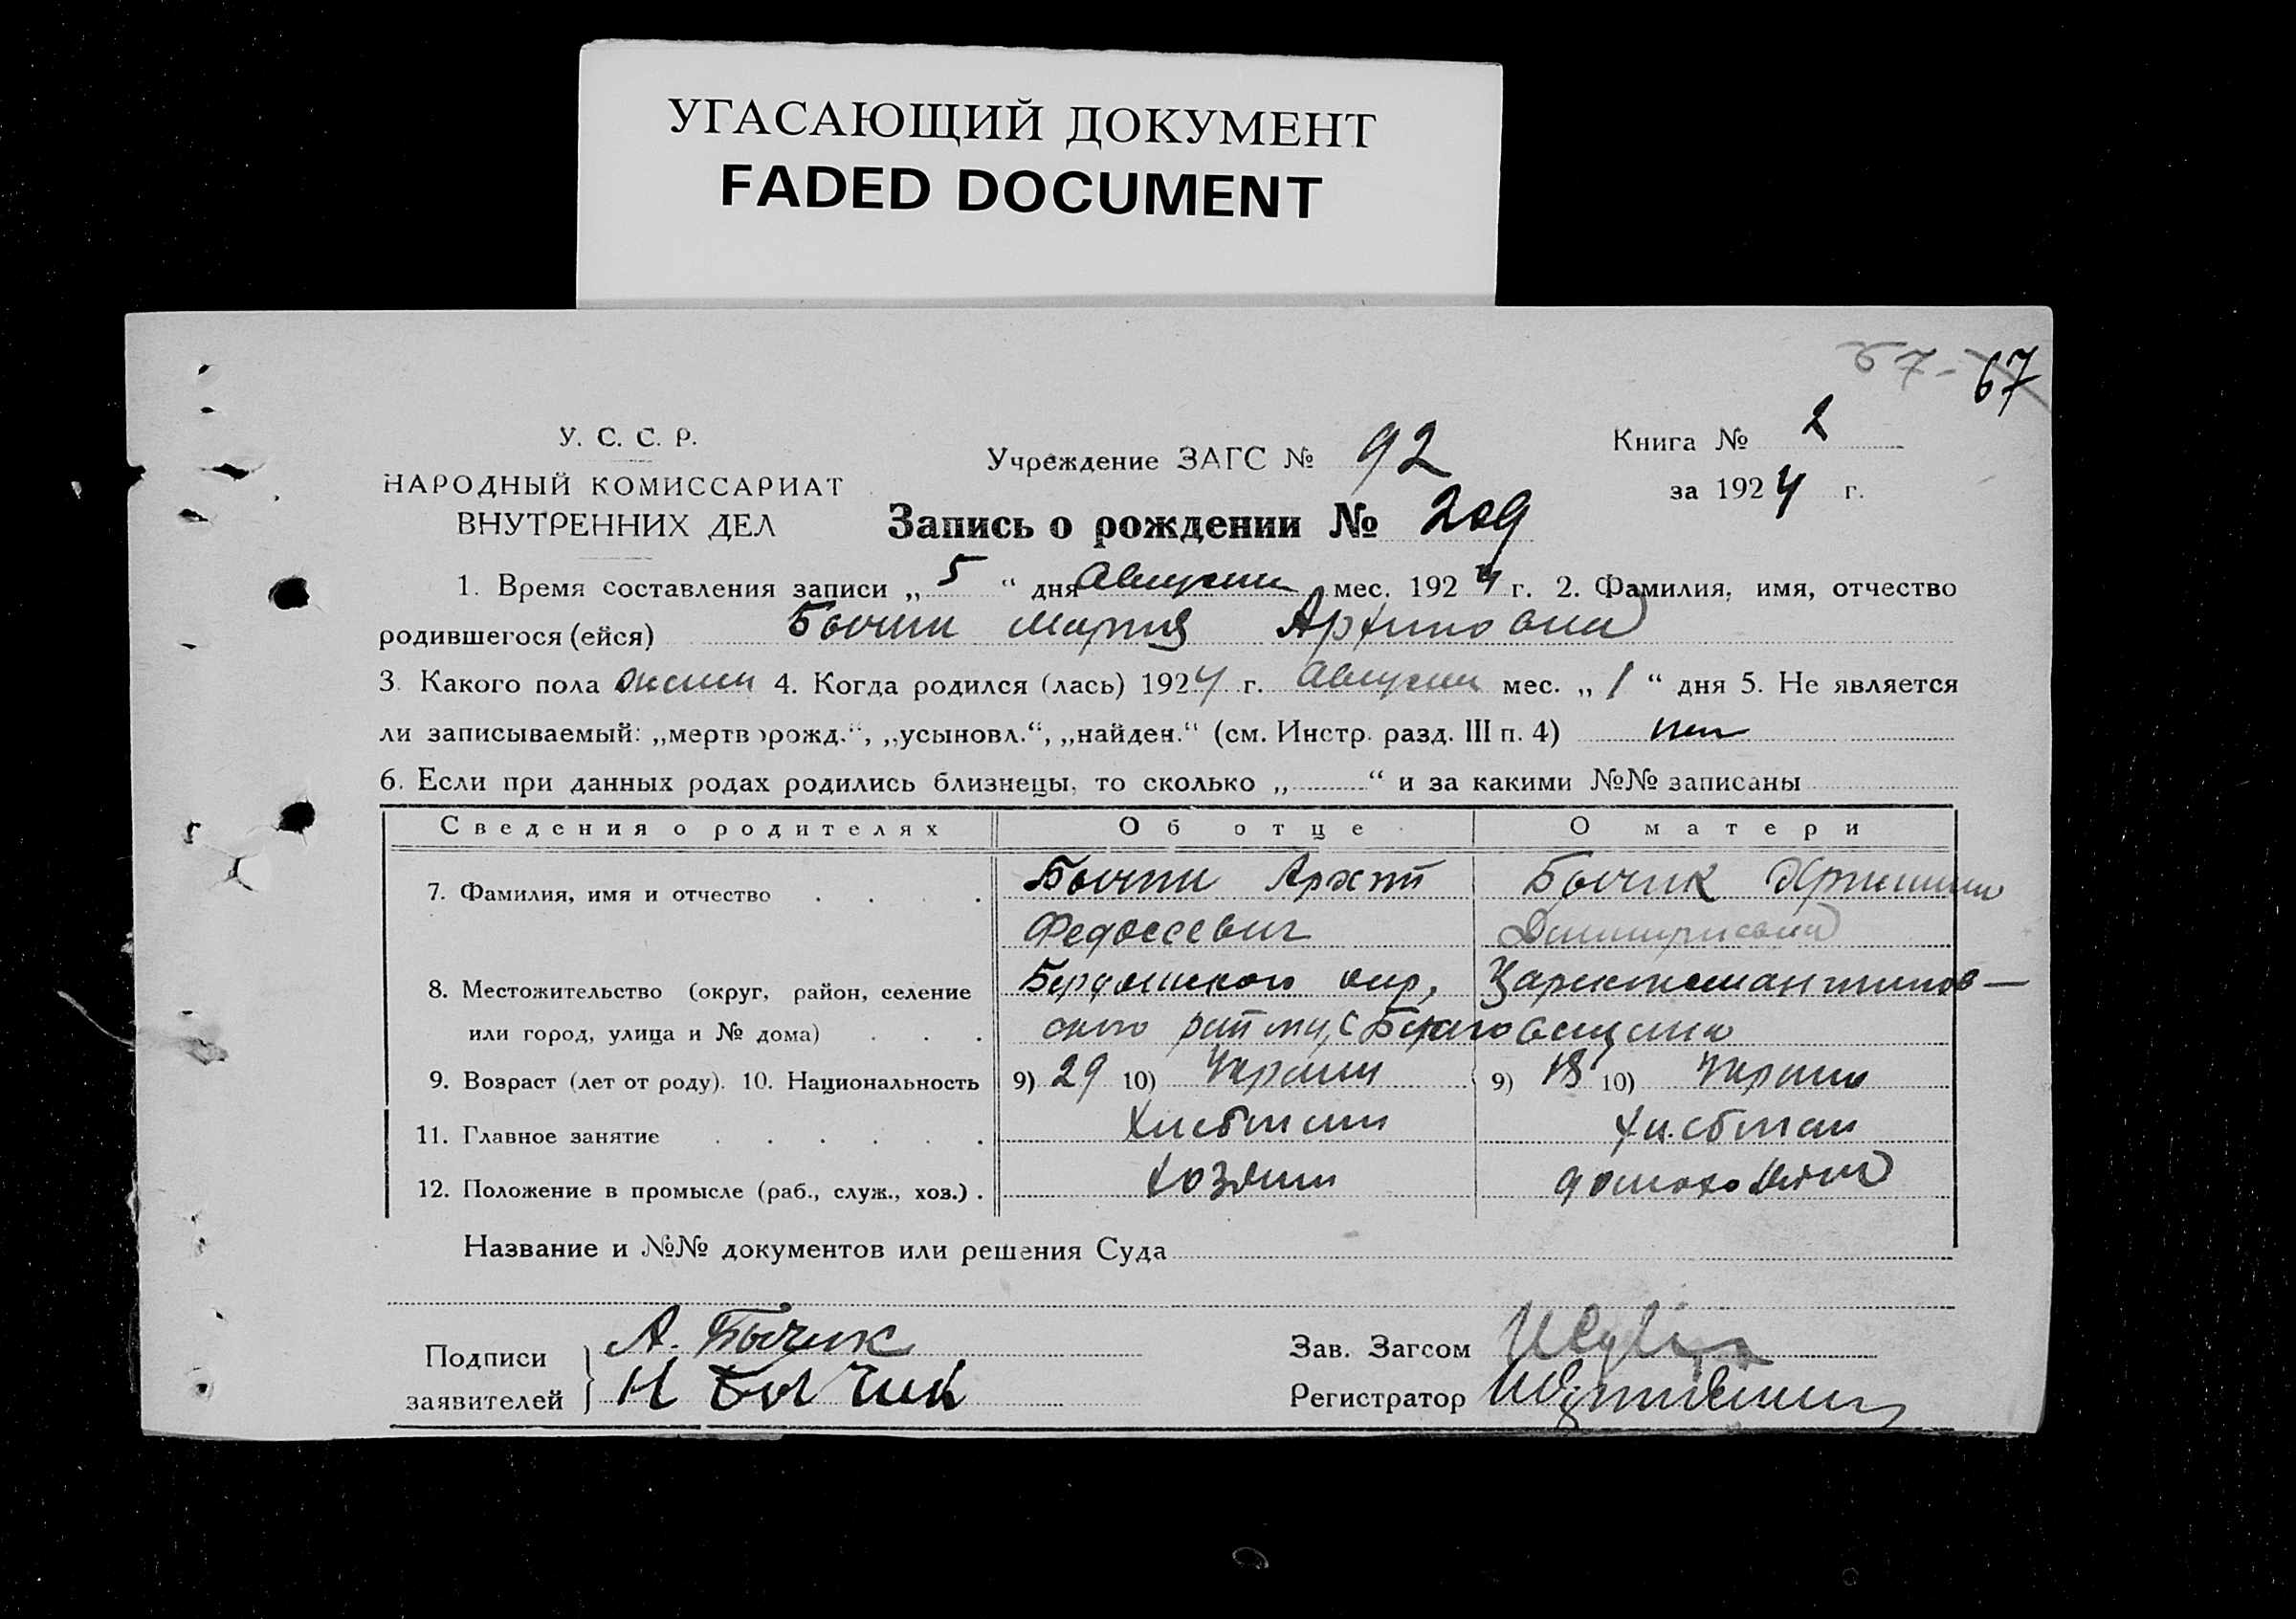 УГАСАЮЩИЙ ДОКУМЕНТ
FADED DOCUMENT
57- 67
У. С. С. Р.
НАРОДНЫЙ КОМИССАРИАТ
ВНУТРЕННИХ ДЕЛ
Учреждение ЗАГС № 92
Книга № 2
за 1924 г.
Запись о рождении № 209
1. Время составления записи „ 5 “ дня Августа мес. 1924 г. 2. Фамилия, имя, отчество
родившегося (ейся) Бычик Мария Архиповна
3. Какого пола женск 4. Когда родился (лась) 1924 г. Августа мес. „ 1 “ дня 5. Не является
ли записываемый: „мертворожд.“, „усыновл.“, „найден.“ (см. Инстр. разд. III п. 4) нет
6. Если при данных родах родились близнецы, то сколько „ “ и за какими №№ записаны
Сведения о родителях Об отце О матери
7. Фамилия, имя и отчество Бычик Архип Бычик
Федосеевич Дмитриевна
8. Местожительство (округ, район, селение Бердянского окр, Цареконстантинов—
или город, улица и № дома) ского района, с
9. Возраст (лет от роду). 10. Национальность 9) 29 10) Украин 9) 18 10) Украин
11. Главное занятие хлебопаш хлебопаш
12. Положение в промысле (раб., служ., хоз.) . хозяин домохозяйка
Название и №№ документов или решения Суда
Подписи заявителей } А. Бычик
Н Бычик
Зав. Загсом
Регистратор